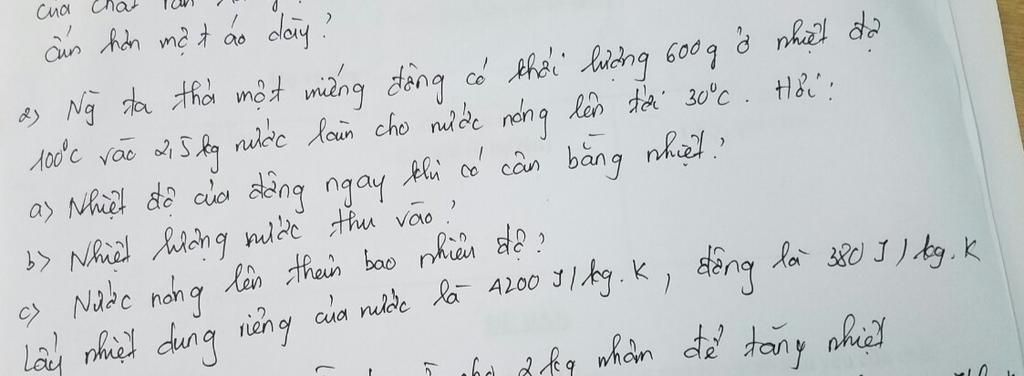 của chất rắn
ấm hơn mặt áo dày?
2) Ng ta thả một miếng đồng có khối lượng 600g ở nhiệt độ
100°C vào 2,5 kg nước làm cho nước nóng lên tới 30°C. Hỏi:
a) Nhiệt độ của đồng ngay khi có cân bằng nhiệt?
b) Nhiệt lượng nước thu vào?
c) Nước nóng lên thêm bao nhiêu độ?
Lấy nhiệt dung riêng của nước là 4200 J/kg.K, đồng là 380 J/kg.K
2 kg nhôm để tăng nhiệt